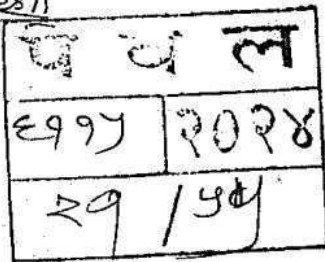 प व ल
६११५ २०२४
२१ / ५५